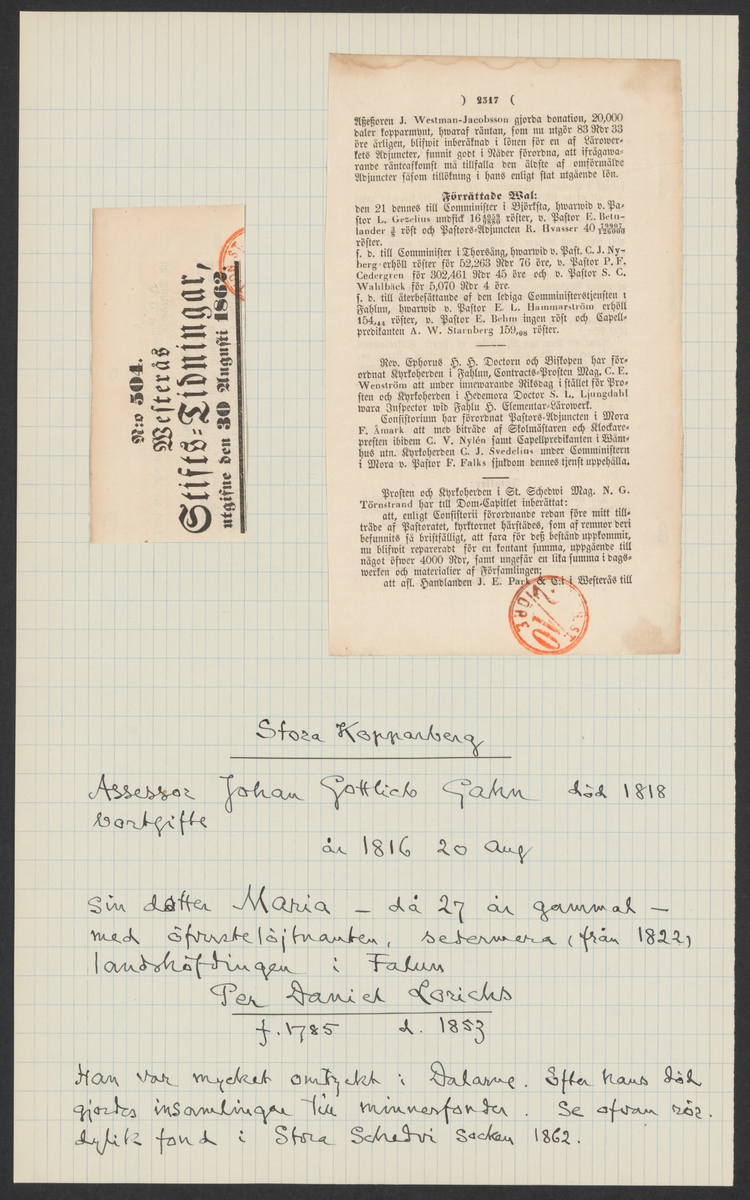 N:o 504.
Westerås
Stifts-Tidningar,
utgifne den 30 Augusti 1862.
) 2317 (
Aßeßoren J. Westman-Jacobsson gjorda donation, 20,000
daler kopparmynt, hwaraf räntan, som nu utgör 83 Rdr 33
öre årligen, blifwit inberäknad i lönen för en af Lärower-
kets Adjuncter, funnit godt i Nåder förordna, att ifrågawa-
rande ränteafkomst må tillfalla den äldste af omförmälde
Adjuncter såsom tillökning i hans enligt stat utgående lön.
Förrättade Wal:
den 21 dennes till Comminister i Björksta, hwarwid v. Pa-
stor L. Gezelius undfick 16 röster, v. Pastor E. Betu-
lander röst och Pastors-Adjuncten R. Hvasser 40
röster.
s. d. till Comminister i Thorsång, hwarwid v. Past. C. J. Ny-
berg erhöll röster för 52,263 Rdr 76 öre, v. Pastor P. F.
Cedergren för 302,461 Rdr 45 öre och v. Pastor S. C.
Wahlbäck för 5,070 Rdr 4 öre.
s. d. till återbesättande af den lediga Comministerstjensten i
Fahlun, hwarwid v. Pastor E. L. Hammarström erhöll
154,44 röster, v. Pastor E. Behm ingen röst och Capell-
predikanten A. W. Starnberg 159,08 röster.
Rev. Ephorus H. H. Doctorn och Biskopen har för-
ordnat Kyrkoherden i Fahlun, Contracts-Prosten Mag. C. E.
Wenström att under innewarande Riksdag i stället för Pro-
sten och Kyrkoherden i Hedemora Doctor S. L. Ljungdahl
wara Inspector wid Fahlu H. Elementar-Lärowerk.
Consistorium har förordnat Pastors-Adjuncten i Mora
F. Åmark att med biträde af Skolmästaren och Klockare-
presten ibidem C. V. Nylén samt Capellpredikanten i Wåm-
hus utn. Kyrkoherden C. J. Svedelius under Comministern
i Mora v. Pastor F. Falks sjukdom dennes tjenst uppehålla.
Prosten och Kyrkoherden i St. Schedwi Mag. N. G.
Törnstrand har till Dom-Capitlet inberättat:
att, enligt Consistorii förordnande redan före mitt till-
träde af Pastoratet, kyrktornet härstädes, som af remnor deri
befunnits så bristfälligt, att fara för deß bestånd uppkommit,
nu blifwit repareradt för en kontant summa, uppgående till
något öfwer 4000 Rdr, samt ungefär en lika summa i dags-
werken och materialier af Församlingen;
att afl. Handlanden J. E. Park & C:i i Westerås till
Stora Kopparberg
Assessor Johan Gottlieb Gahn död 1818
bortgifte
år 1816 20 Aug
sin dotter Maria – då 27 år gammal –
med öfverstelöjtnanten, sedermera (från 1822)
landshöfdingen i Falun
Per Daniel Lorichs
f. 1785 d. 1853
Han var mycket omtyckt i Dalarne. Efter hans död
gjordes insamlingar till minnesfonder. Se ofvan rör.
dylik fond i Stora Schedvi socken 1862.